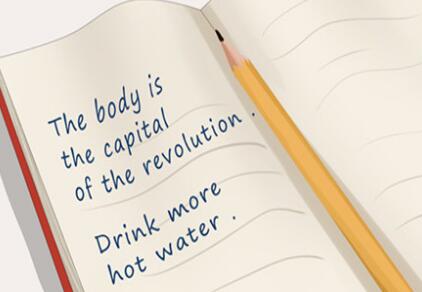 The body is
the capital
of the revolution .
Drink more
hot water .